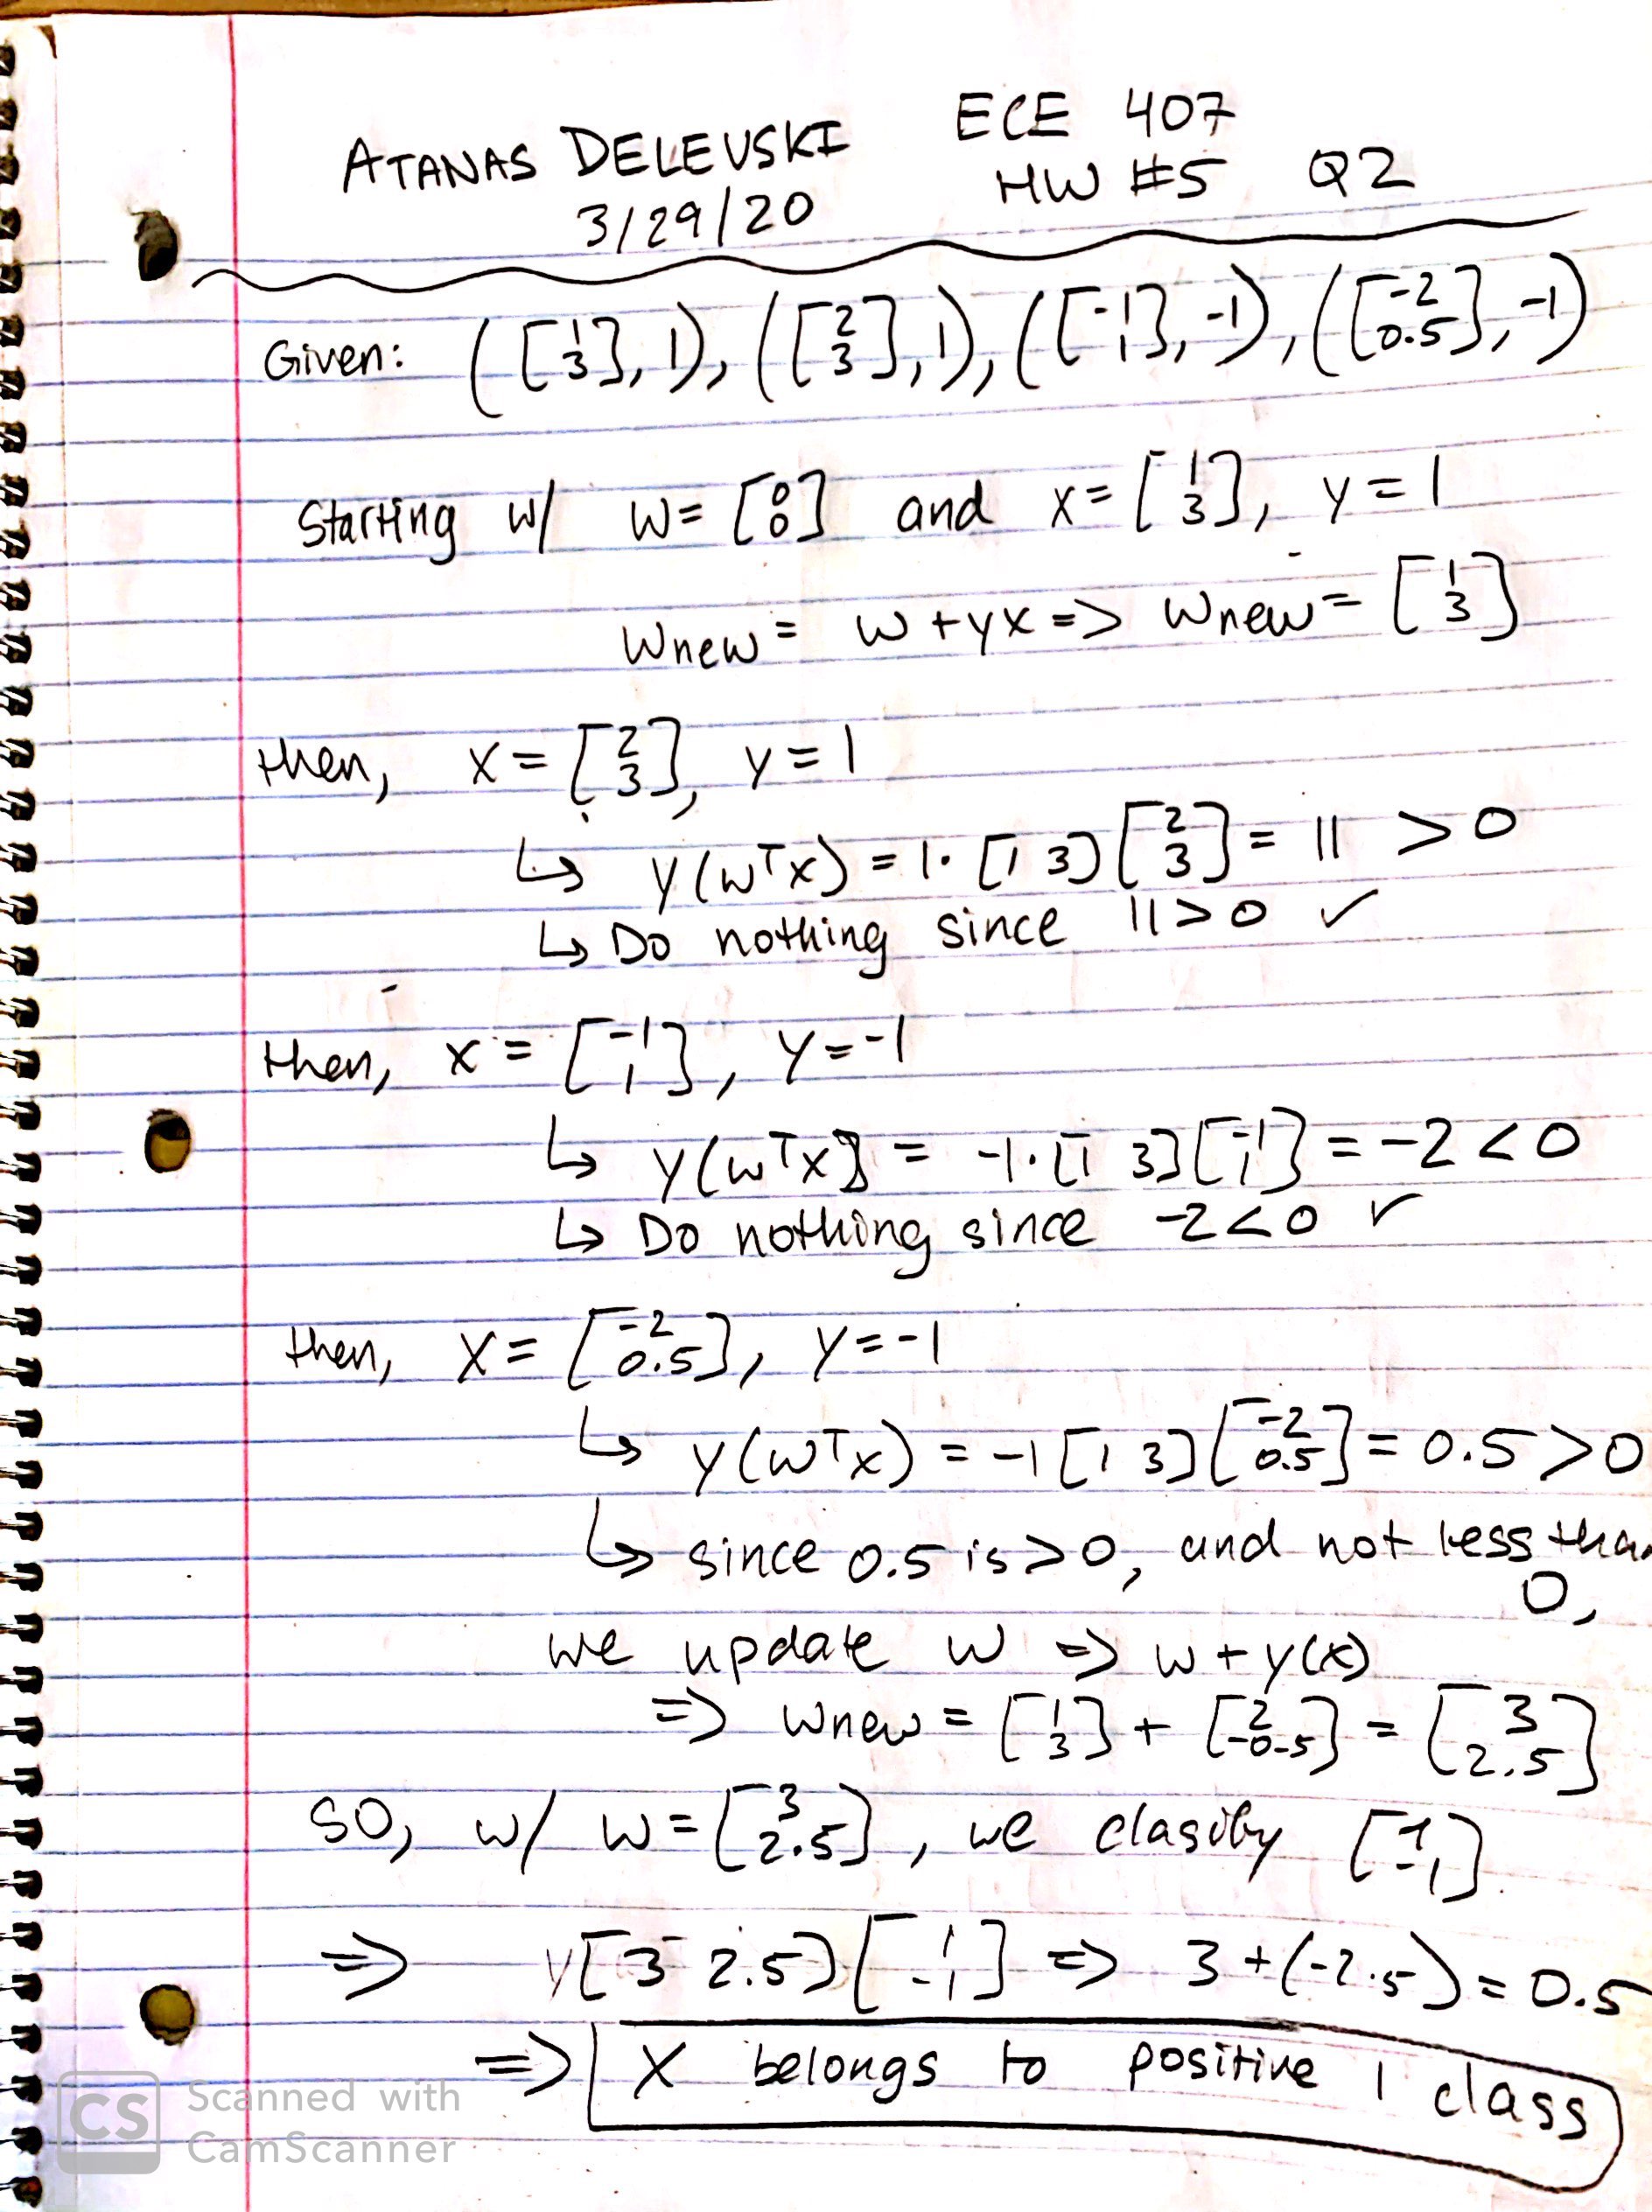 ATANAS DELEVSKI ECE 407
3/29/20 HW #5 Q2
Given: ([1 3], 1), ([2 3], 1), ([-1 1], -1), ([-2 0.5], -1)
Starting w/ w = [0 0] and x = [1 3], y = 1
Wnew = w + yx => Wnew = [1 3]
then, x = [2 3], y = 1
↳ y(wᵀx) = 1· [1 3] [2 3] = 11 > 0
↳ Do nothing since 11 > 0 ✓
then, x = [-1 1], y = -1
↳ y(wᵀx) = -1·[1 3][-1 1] = -2 < 0
↳ Do nothing since -2 < 0 ✓
then, x = [-2 0.5], y = -1
↳ y(wᵀx) = -1 [1 3] [-2 0.5] = 0.5 > 0
↳ since 0.5 is > 0, and not less than
0,
we update w => w + y(x)
=> Wnew = [1 3] + [2 -0.5] = [3 2.5]
SO, w/ w = [3 2.5], we clasify [1 -1]
=> y[3 2.5] [1 -1] => 3 + (-2.5) = 0.5
=> X belongs to positive 1 class
CS Scanned with
CamScanner